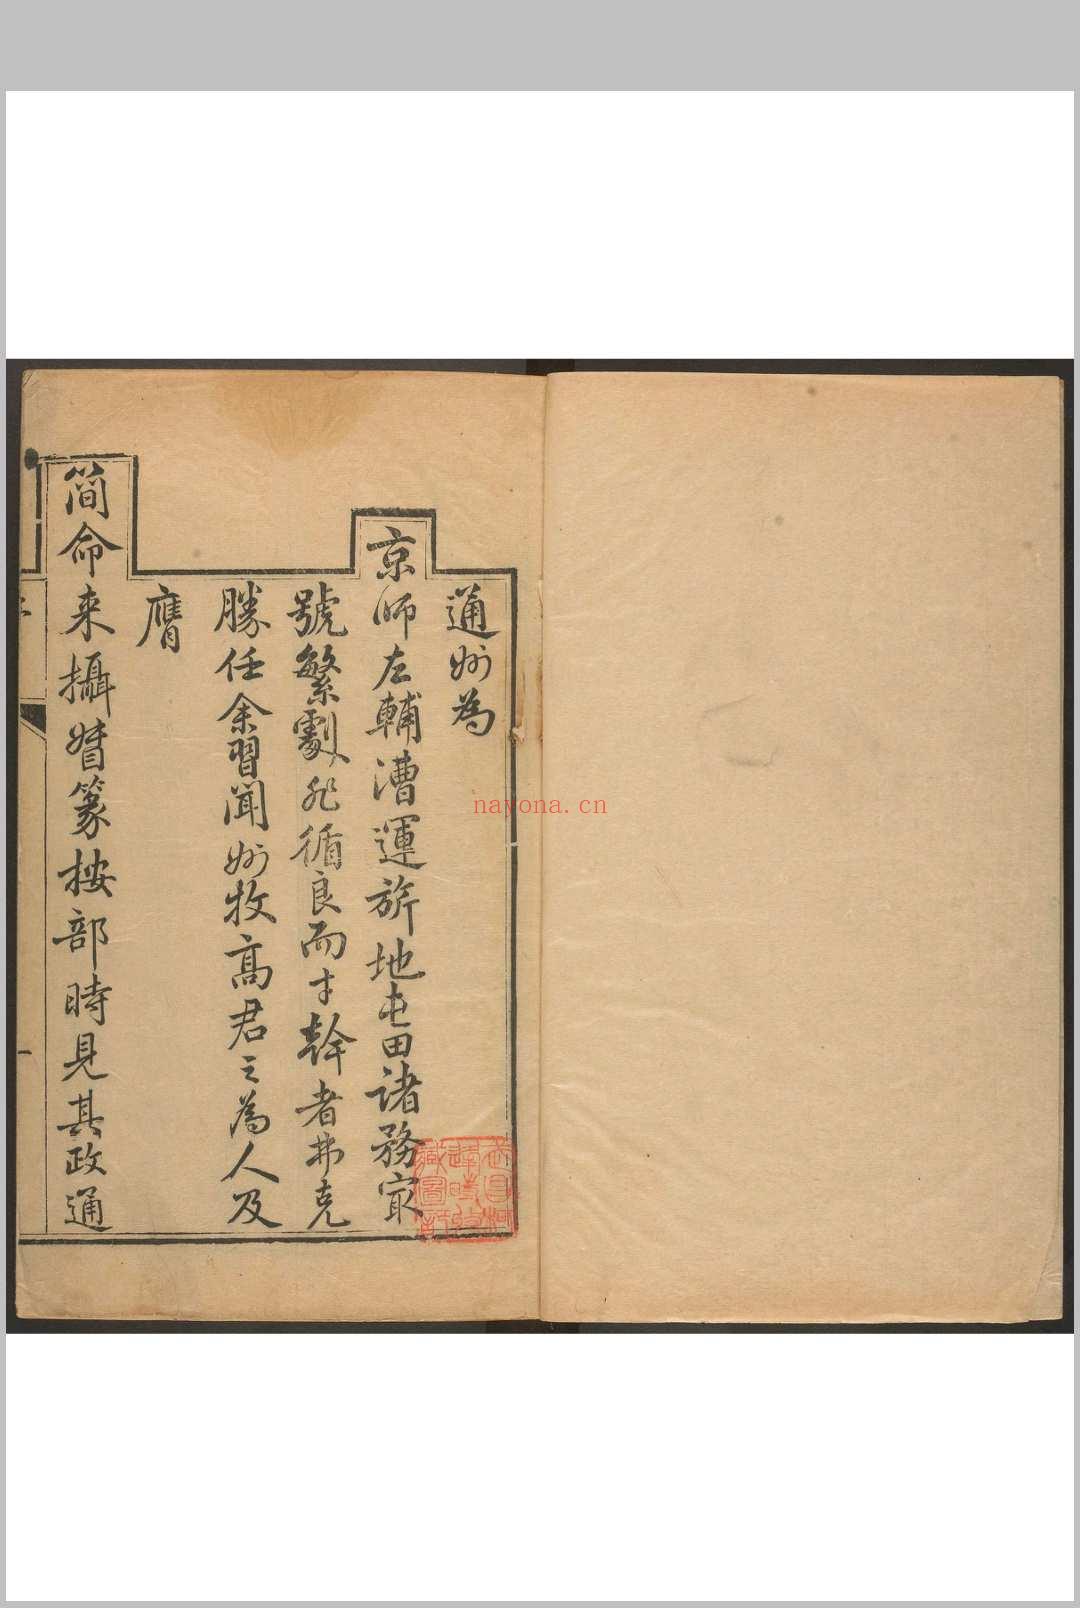 通州為
京師左輔漕運旂地屯田諸務㝡
號繁劇非循良而才幹者弗克
勝任余習聞州牧高君之為人及
膺
簡命来攝督篆按部時見其政通
武昌柯逢時收藏圖記
nayona.cn